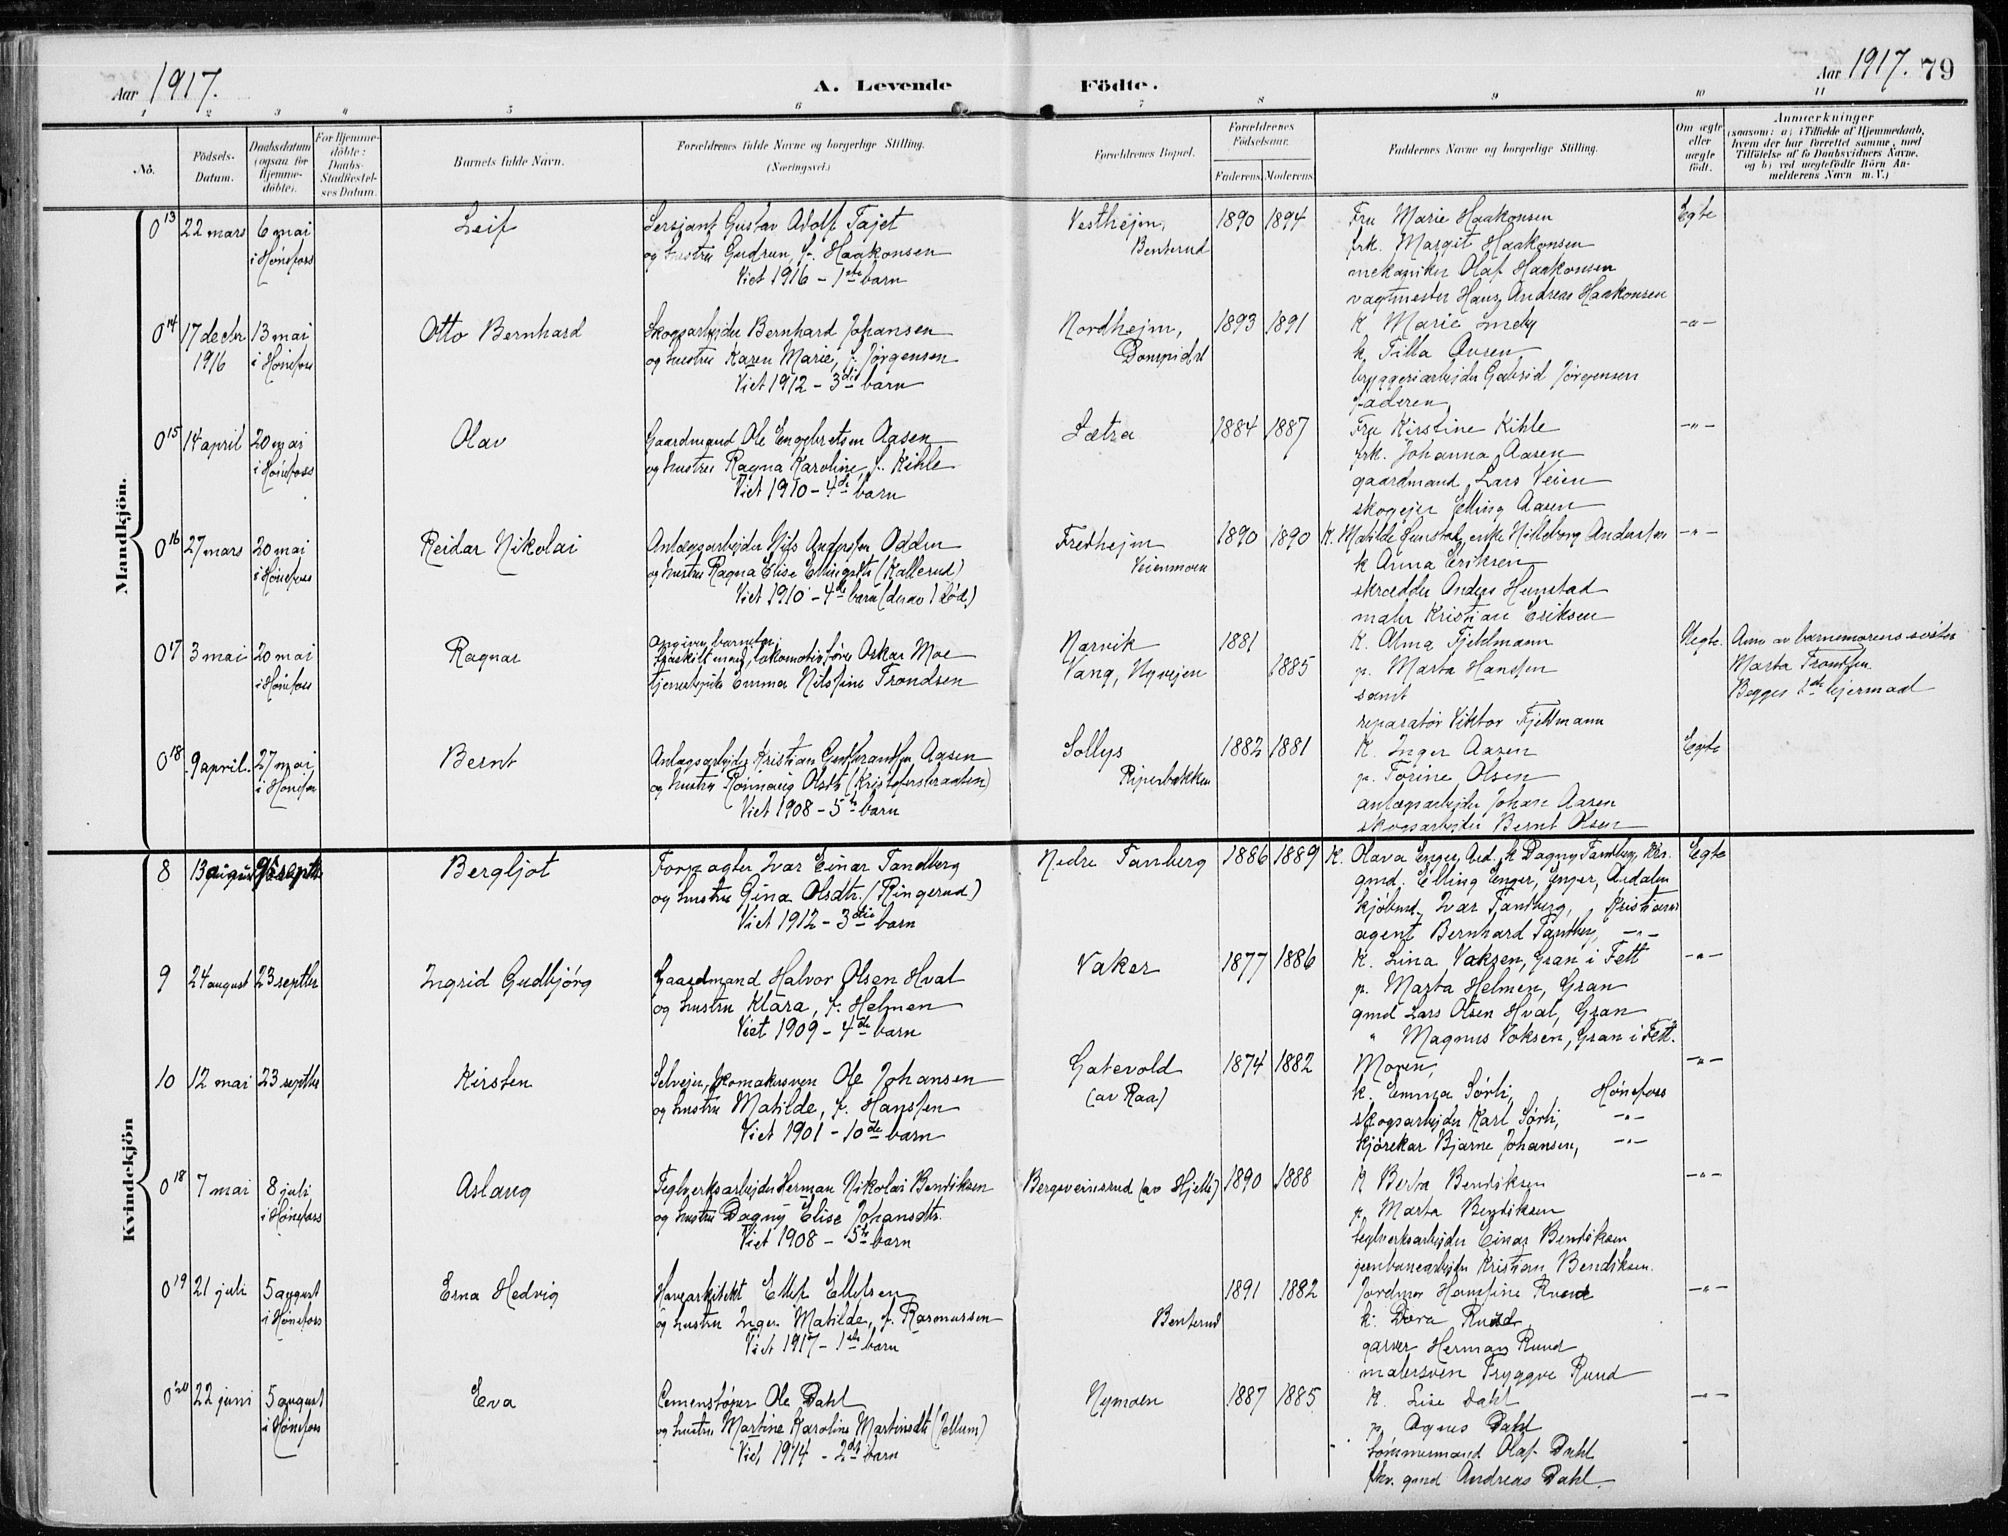 Aar 1917.
A. Levende Födte.
Aar 1917. 79
1 2 3 4 5 6 7 8 9 10 11
No.
Födsels-Datum.
Daabsdatum (ogsaa for Hjemmedöbte).
For Hjemmedöbte: Daabs-Stadfæstelses Datum.
Barnets fulde Navn.
Forældrenes fulde Navne og borgerlige Stilling. (Næringsvei.)
Forældrenes Bopæl.
Forældrenes Födselsaar.
Faderens. Moderens.
Faddernes Navne og borgerlige Stilling.
Om ægte eller uægte födt.
Anmærkninger
(saasom: a) i Tilfælde af Hjemmedaab, hvem der har forrettet samme, med Tilföielse af to Daabsvidners Navne, og b) ved uægtefödte Börn Anmelderens Navn m. V.)
Mandkjön.
0 13 22 mars 6 mai i Hönefoss
Leif
Sersjant Gustav Adolf Tajet
og hustru Gudrun, f. Haakonsen
Viet 1916 - 1ste barn
Vesthejm, Benterud
1890 1894
Fru Marie Haakonsen
frk. Margit Haakonsen
mekaniker Olaf Haakonsen
vagtmester Hans Andreas Haakonsen
Egte
0 14 17 decbr 1916 13 mai i Hönefoss
Otto Bernhard
Skogsarbejder Bernhard Johansen
og hustru Karen Marie, f. Jörgensen
Viet 1912 - 3die barn
Nordhejm,
1893 1891
K. Marie
k. Tilla
bryggeriarbejder Gabriel Jörgensen
faderen
-"-
0 15 14 april 20 mai i Hönefoss
Olav
Gaardmand Ole Engebretsen Aasen
og hustru Ragna Karoline, f. Kihle
Viet 1910 - 4de barn
Sætra
1884 1887
Fru Kirstine Kihle
frk. Johanna Aasen
gaardmand Lars Veien
skogejer Elling Aasen
-"-
0 16 27 mars 20 mai i Hönefoss
Reidar Nikolai
Anlægsarbejder Nils Andersen Odden
og hustru Ragna Elise Ellingsdtr (Kallerud)
Viet 1910 - 4de barn (derav 1 död.)
Fredhejm Veienmoen
1890 1890
K. Matilde Hunstad, enke Andersen
k Anna Eriksen
skrædder Anders Hunstad
maler Kristian Eriksen
-"-
0 17 3 mai 20 mai i Hönefoss
Ragnar
Angiven barnefar:
fraskilt mand, lokomotivförer Oskar Moe
tjenestepike Emma Nilsine Trondsen
Narvik
Vang, Nyvejen
1881
1885
K. Alma Fjeldmann
p. Marta Hansen
samt
reparatör Viktor Fjeldmann
Uegte.
Anm av barnemorens söster
Marta Trondsen.
Begges 1ste lejermaal
0 18 9 april. 27 mai i Hönefoss
Bernt
Anlægsarbejder Kristian Gudbrandsen Aasen
og hustru Rönnaug Olsdtr (Kristoferstraaten)
Viet 1908 - 5te barn
Sollys
Riperbakken
1882 1881
K. Inger Aasen
p. Torine Olsen
anlægsarbejder Johan Aasen
skogsarbejder Bernt Olsen
Egte
Kvindekjön
8 13 august septbr
Bergljot
Forpagter Ivar Einar Tandberg
og hustru Gina Olsdtr. (Ringerud)
Viet 1912 - 3die barn
Nedre Tanberg
1886 1889
K. Olava Enger, k Dagny Tandberg, Kra.
gmd. Elling Enger, Enger, Aadalen
kjöbmd. Ivar Tandberg, Kristiania
agent Bernhard Tandberg, -"-
Egte
9 24 august 23 septbr
Ingrid Gudbjörg
Gaardmand Halvor Olsen Hval
og hustru Klara, f. Helmen
Viet 1909 - 4de barn
Vaker
1877 1886
K. Lina Voksen, Gran i Fett
p. Marta Helmen, Gran
gmd Lars Olsen Hval, Gran
" Magnus Voksen, Gran i Fett.
-"-
10 12 mai 23 septbr
Kirsten
Selvejer, skomakersven Ole Johansen
og hustru Matilde, f. Hansen
Viet 1901 - 10de barn
Gatevold
(av Raa)
1874 1882
Moren,
k. Emma Sörli, Hönefoss
skogsarbejder Karl Sörli, -"-
kjörekar Bjarne Johansen, -"-
-"-
0 18 7 mai 8 juli i Hönefoss
Aslaug
Teglverksarbejder Herman Nikolai Bendiksen
og hustru Dagny Elise Johansdtr.
Viet 1908 - 5te barn
1890 1888
K Berta Bendiksen
p. Marta Bendiksen
teglverksarbejder Einar Bendiksen
jernbanearbejder Kristian Bendiksen.
-"-
0 19 21 juli 5 august i Hönefoss
Erna Hedvig
Havearkitekt Ellef Ellefsen
og hustru Inger Matilde, f. Rasmussen
Viet 1917 - 1ste barn
Benterud
1891 1882
Jordmor Hansine Ruud
k. Dora Ruud,
garver Herman Ruud
malersven Tryggve Ruud
-"-
0 20 22 juni 5 august i Hönefoss
Eva
Cementstöper Ole Dahl
og hustru Martine Karoline Martinsdtr (Jellum)
Viet 1914 - 2det barn
Nymoen
1887 1885
K. Lise Dahl
p. Agnes Dahl
tömmermand Olaf Dahl
fhv. gmd Andreas Dahl.
-"-